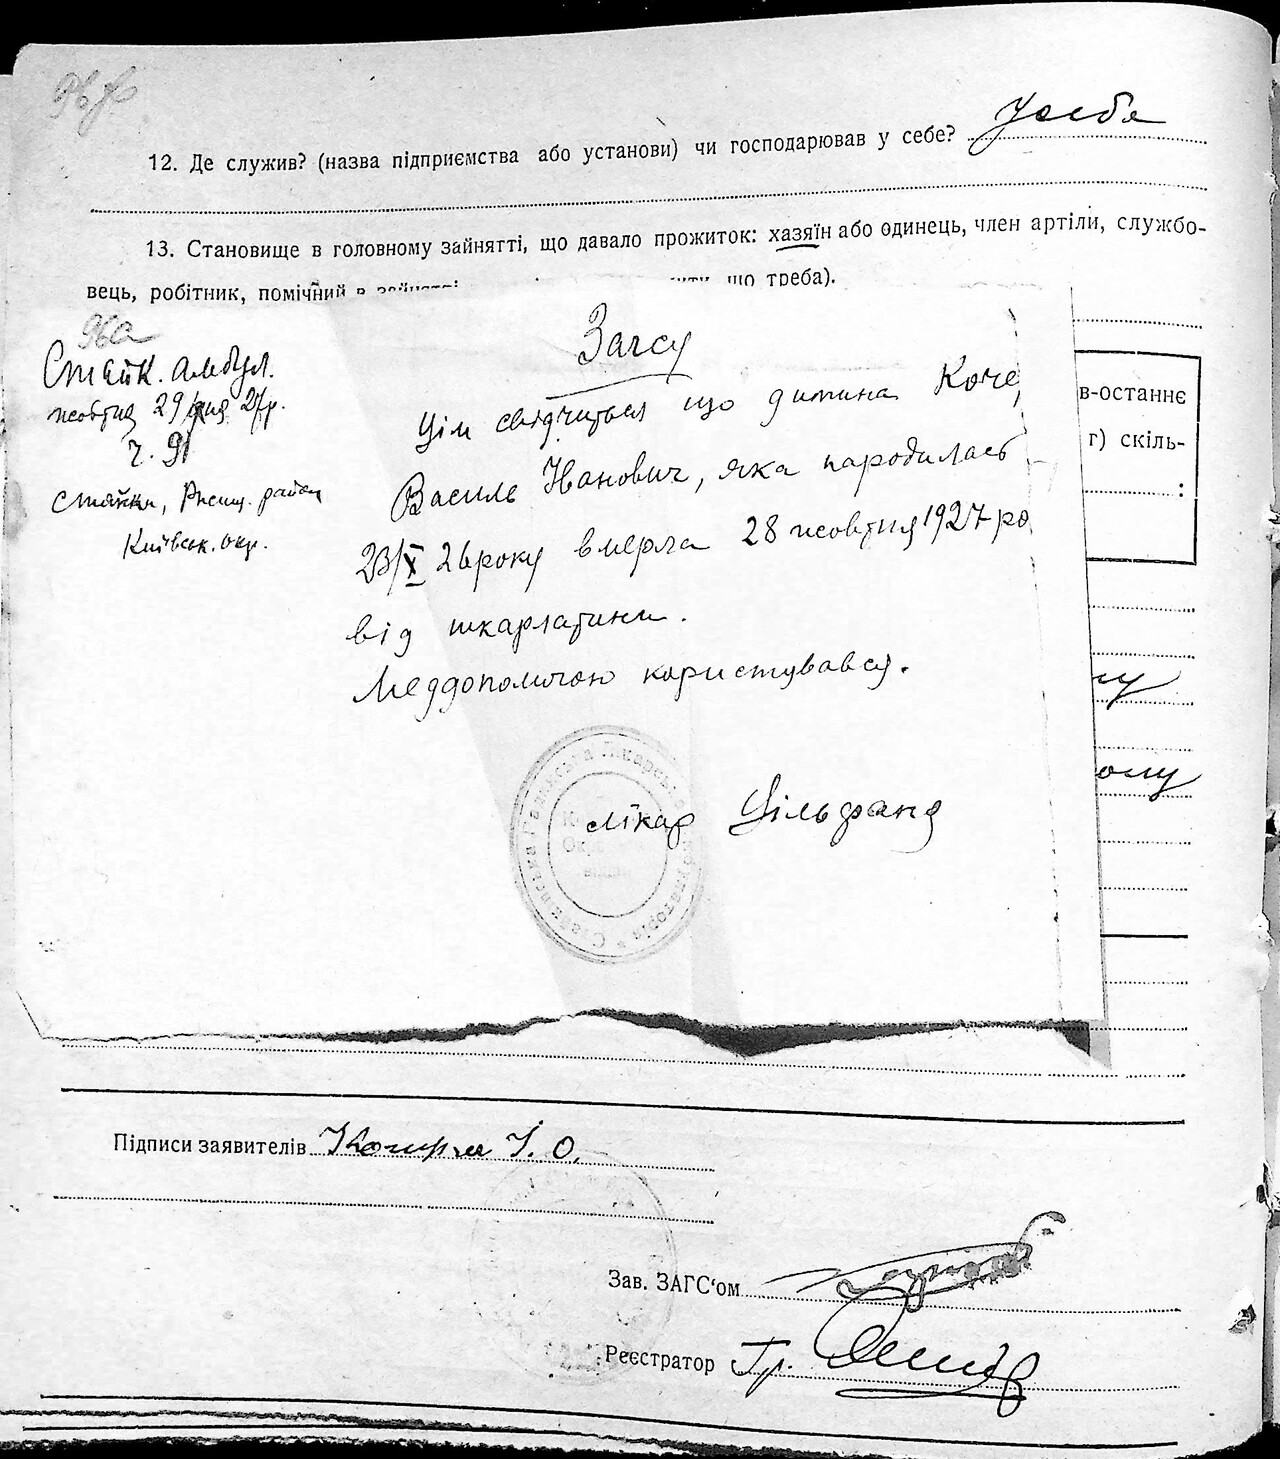 12. Де служив? (назва підприємства або установи) чи господарював у себе? У себе
13. Становище в головному зайнятті, що давало прожиток: хазяїн або одинець, член артіли, службо-
вець, робітник, помічний в що треба).
96а
Стайк. амбул.
жовтня 29/дня 27р.
ч. 91
Стайки, Ржищ. район
Київськ. окр.
Загсу
Цім свідчиться що дитина Коче
Василь Іванович, яка народилась
23/X 26 року вмерла 28 жовтня 1927 ро
від шкарлатини.
Меддопомічою користувався.
лікар Цільфанд
в-останнє
г) скіль-
:
ому
Підписи заявителів І. О.
Зав. ЗАГС'ом
Реєстратор Гр.